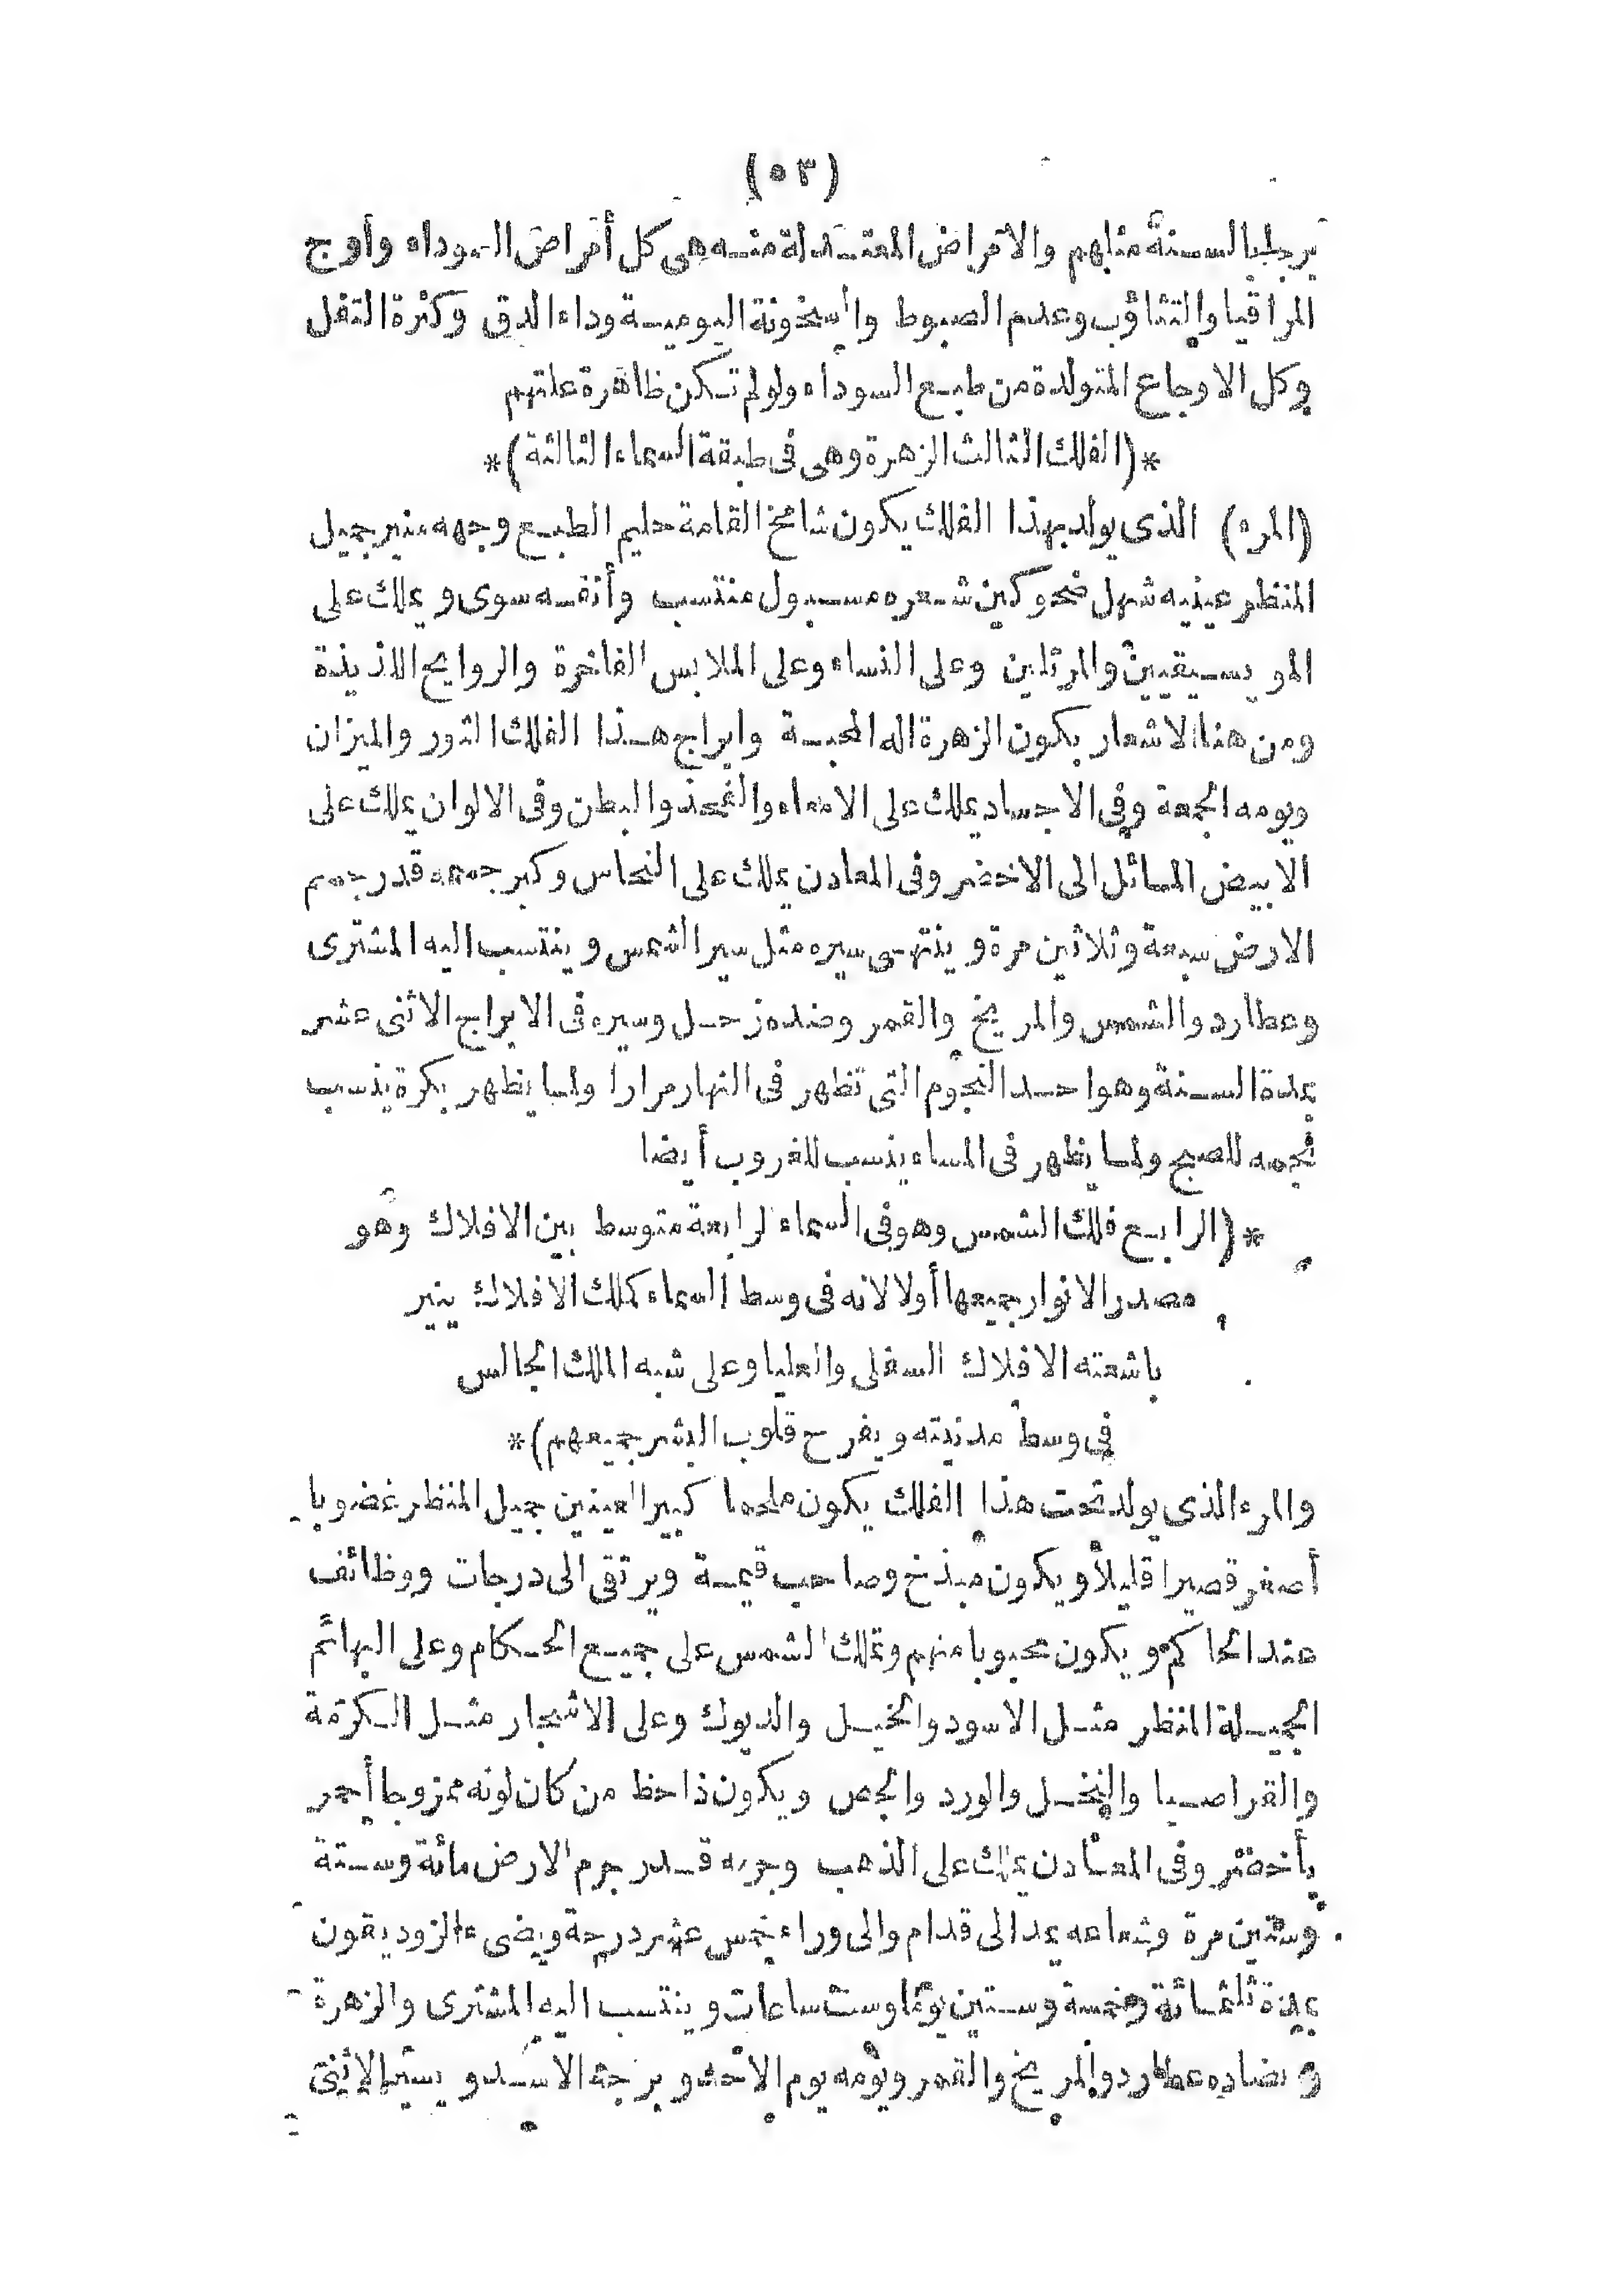 (٥٣)
بالسنة مثلهم والامراض المعتدلة منه هى كل أمراض السوداء وأوج
المراقيا والتثاؤب وعدم الصبوط والسخونة اليومية وداء الدق وكثرة التفل
وكل الاوجاع المتولدة من طبع السوداء ولو لم تكن ظاهرة علتهم
*(الفلك الثالث الزهرة وهى فى طبقة السماء الثالثة)*
(المرء) الذى يولد بهذا الفلك يكون شامخ القامة حليم الطبع وجهه منير جميل
المنظر عينيه شهل ضحوكين شعره مسبول منتسب وأنفه سوى ويملك على
المويسيقيين والمرتلين وعلى النساء وعلى الملابس الفاخرة والروايح اللذيذة
ومن هنا الاشعار بكون الزهرة اله المحبة وابراج هذا الفلك الثور والميزان
ويومه الجمعة وفى الاجساد يملك على الامعاء والفخذ والبطن وفى الالوان يملك على
الابيض المائل الى الاخضر وفى المعادن يملك على النحاس وكبر جمعه قدر جمم
الارض سبعة وثلاثين مرة وينتهى سيره مثل سير الشمس وينتسب اليه المشترى
وعطارد والشمس والمريخ والقمر وضده زحل وسيره فى الابراج الاثنى عشر
بمدة السنة وهو احد النجوم التى تظهر فى النهار مرارا ولما يظهر بكرة ينسب
نجمه للصبح ولما يظهر فى المساء ينسب للغروب أيضا
*(الرابع فلك الشمس وهو فى السماء الرابعة متوسط بين الافلاك وهو
مصدر الانوار جميعها أولا لانه فى وسط السماء كملك الافلاك ينير
باشعته الافلاك السفلى والعليا وعلى شبه الملك الجالس
فى وسط مدينته ويفرح قلوب البشر جميعهم)*
والمرء الذى يولد تحت هذا الفلك يكون ملحما كبير العينين جميل المنظر غضوبا
أصفر قصيرا قليلا ويكون مبذخ وصاحب قيمة ويرتقى الى درجات ووظائف
عند الحاكم ويكون محبوبا منهم وتملك الشمس على جميع الحكام وعلى البهائم
الجميلة المنظر مثل الاسود والخيل والديوك وعلى الاشجار مثل الكرمة
والقراصيا والنخل والورد والحمص ويكون ذا حظ من كان لونه ممزوجا أحمر
بأخضر وفى المعادن يملك على الذهب وجرمه قدر جرم الارض مائة وستة
وستين مرة وشعاعه يمد الى قدام والى وراء خمس عشر درجة ويضىء الزوديقون
بمدة ثلثمائة وخمسة وستين يوما وست ساعات وينتسب اليه المشترى والزهرة
ويضاده عطارد والمريخ والقمر ويومه يوم الاحد وبرجه الاسد ويسير الاثنى